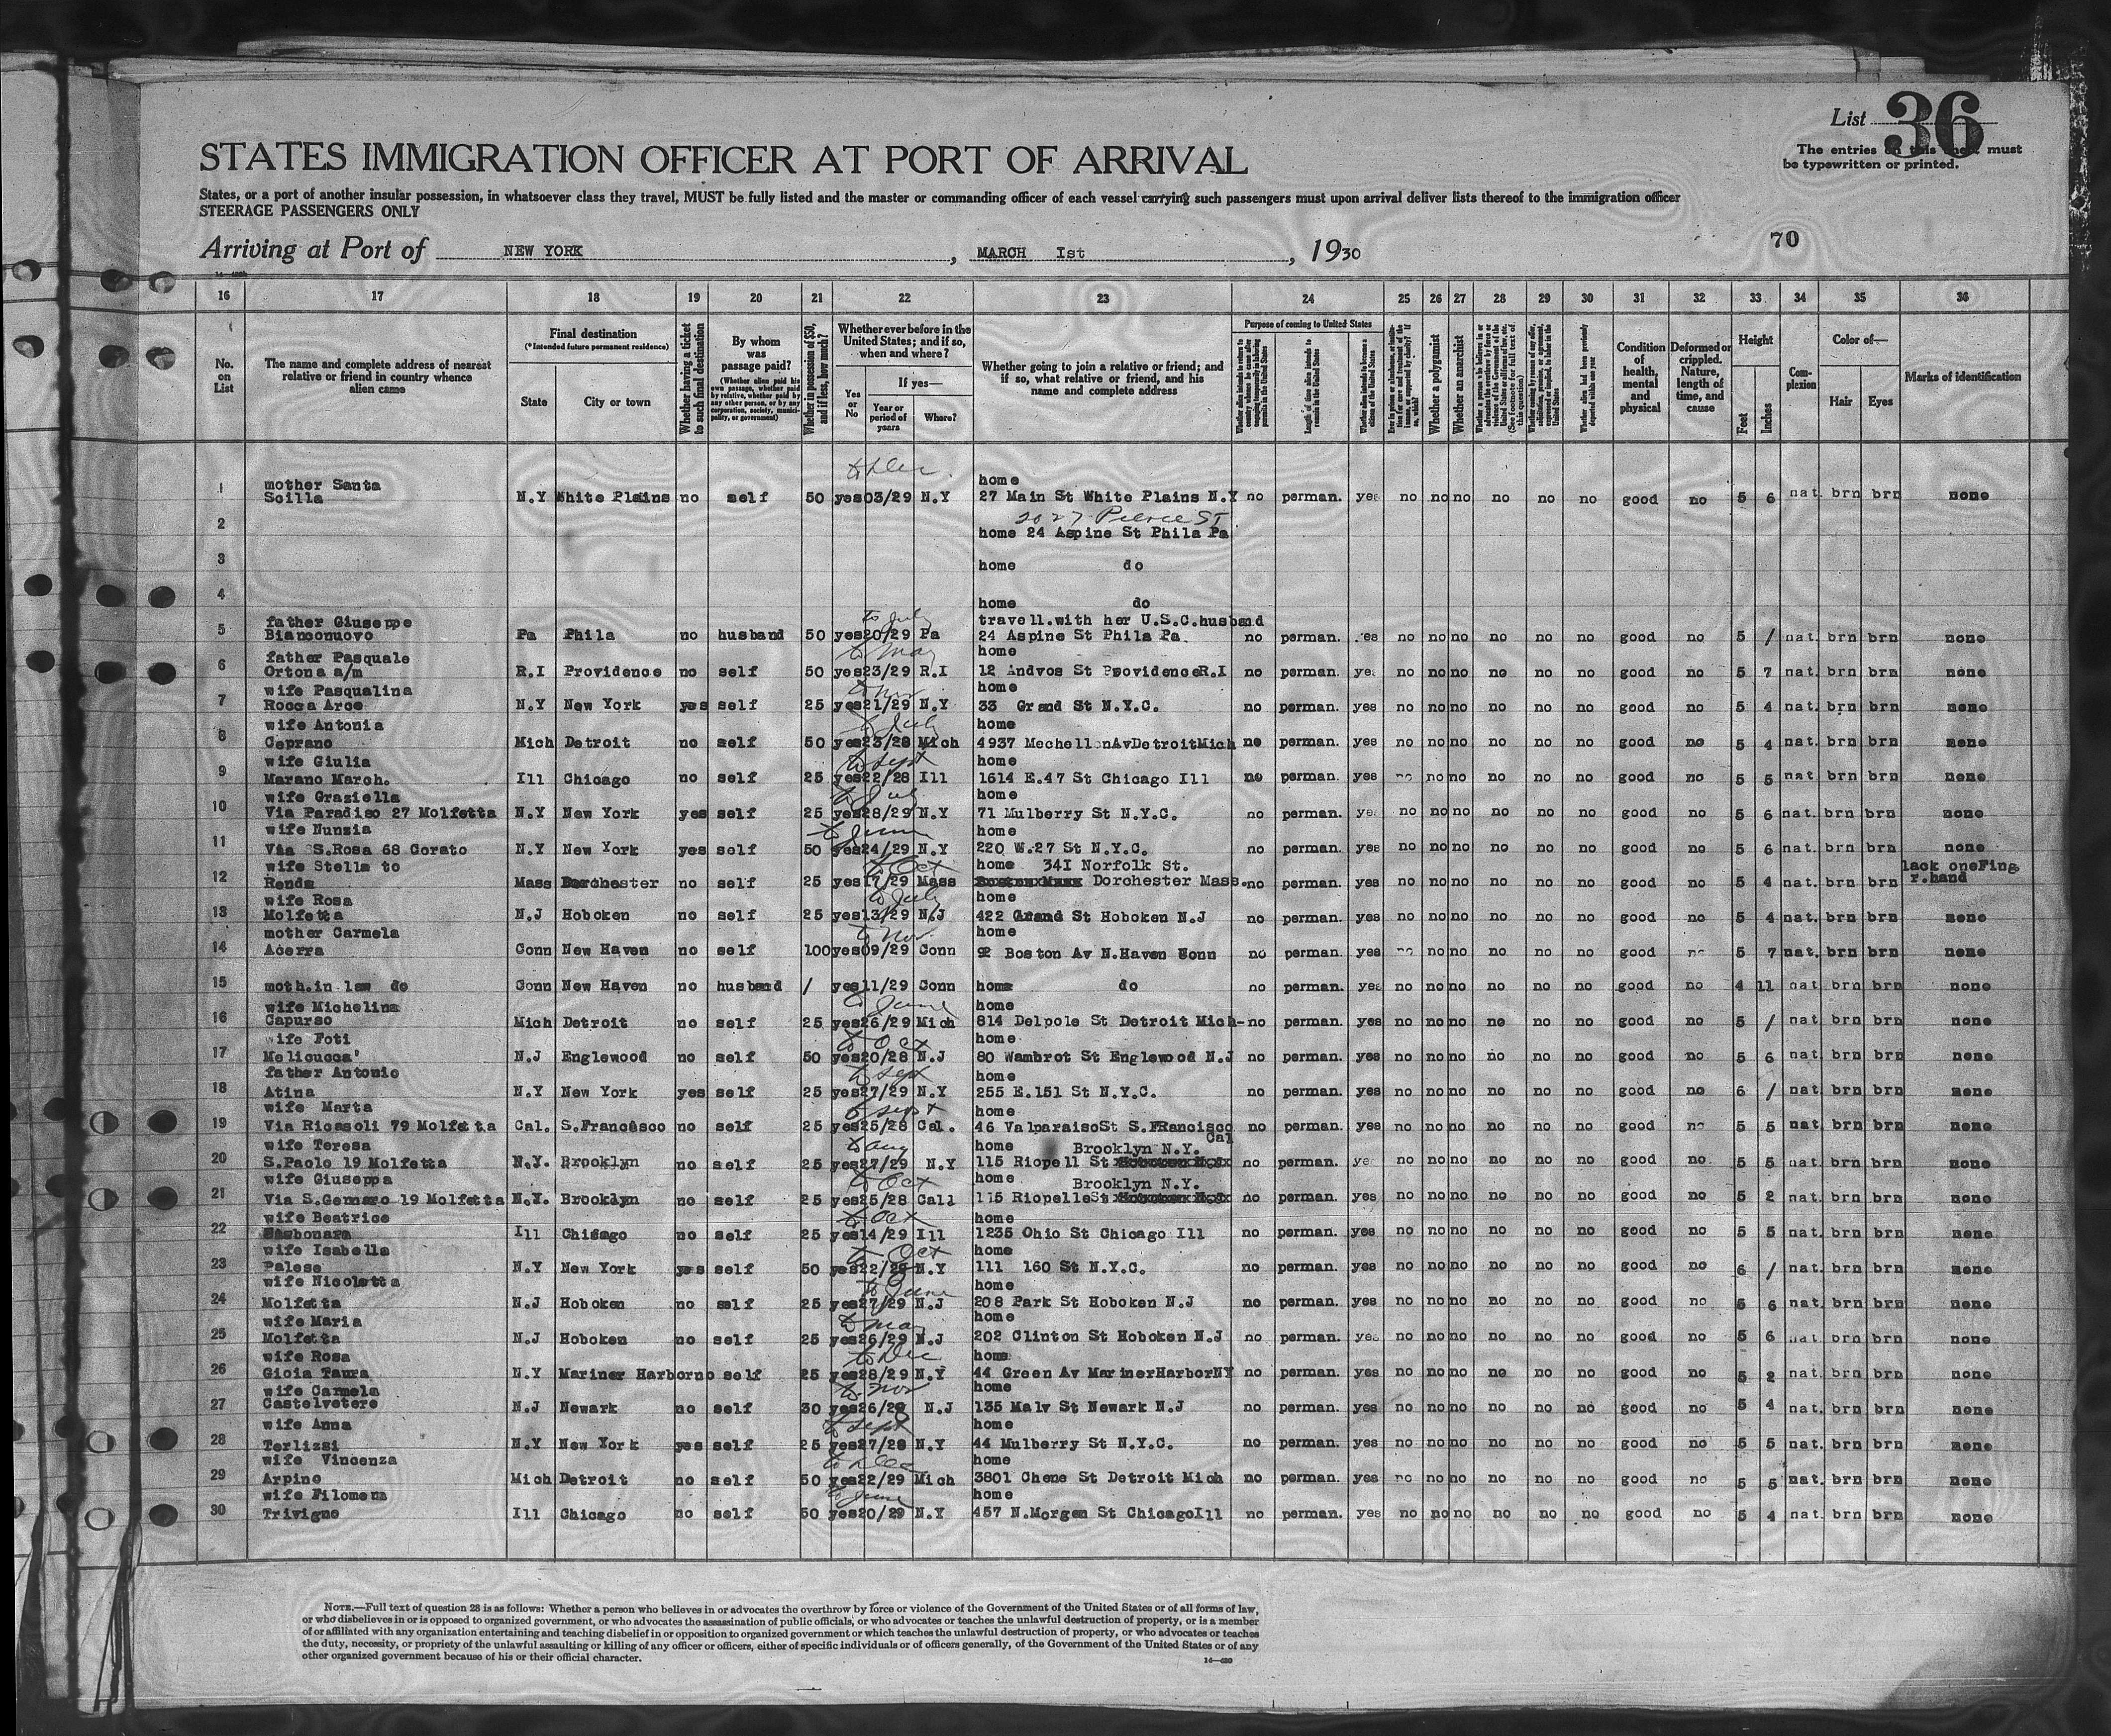 List 36
The entries on this sheet must
be typewritten or printed.
STATES IMMIGRATION OFFICER AT PORT OF ARRIVAL
States, or a port of another insular possession, in whatsoever class they travel, MUST be fully listed and the master or commanding officer of each vessel carrying such passengers must upon arrival deliver lists thereof to the immigration officer
STEERAGE PASSENGERS ONLY
70
Arriving at Port of NEW YORK, MARCH Ist, 1930
16 17 18 19 20 21 22 23 24 25 26 27 28 29 30 31 32 33 34 35 36
No. on List
The name and complete address of nearest relative or friend in country whence alien came
Final destination
(*Intended future permanent residence)
State
City or town
Whether having a ticket to such final destination
By whom was passage paid?
(Whether alien paid his own passage, whether paid by relative, whether paid by any other person, or by any corporation, society, municipality, or government)
Whether in possession of $50, and if less, how much?
Whether ever before in the United States; and if so, when and where?
Yes or No
If yes—
Year or period of years
Where?
Whether going to join a relative or friend; and if so, what relative or friend, and his name and complete address
Purpose of coming to United States
Length of time alien intends to remain in the United States
Whether alien intends to become a citizen of the United States
Whether a polygamist
Whether an anarchist
Condition of health, mental and physical
Deformed or crippled. Nature, length of time, and cause
Height
Feet
Inches
Complexion
Color of—
Hair
Eyes
Marks of identification
to Dec
mother Santa home
1 Scilla N.Y White Plains no self 50 yes 03/29 N.Y 27 Main St White Plains N.Y no perman. yes no no no no no no good no 5 6 nat brn brn none
2027 Pierce ST
2 home 24 Aspine St Phila Pa
3 home do
4 home do
father Giuseppe to July travell.with her U.S.C.husband
5 Bianconuovo Pa Phila no husband 50 yes 20/29 Pa 24 Aspine St Phila Pa. no perman. yes no no no no no no good no 5 / nat. brn brn none
father Pasquale to may home
6 Ortona a/m R.I Providence no self 50 yes 23/29 R.I 12 Andvos St Providence R.I no perman. yes no no no no no no good no 5 7 nat. brn brn none
wife Pasqualina to nov home
7 Rocca Arce N.Y New York yes self 25 yes 21/29 N.Y 33 Grand St N.Y.C. no perman. yes no no no no no no good no 5 4 nat. brn brn none
wife Antonia to July home
8 Ceprano Mich Detroit no self 50 yes 23/28 Mich 4937 MechellenAvDetroitMich no perman. yes no no no no no no good no 5 4 nat. brn brn none
wife Giulia to Sept home
9 Marano March. Ill Chicago no self 25 yes 22/28 Ill 1614 E.47 St Chicago Ill no perman. yes no no no no no no good no 5 5 nat brn brn none
wife Graziella to July home
10 Via Paradiso 27 Molfetta N.Y New York yes self 25 yes 28/29 N.Y 71 Mulberry St N.Y.C. no perman. yes no no no no no no good no 5 6 nat. brn brn none
wife Nunzia to June home
11 Via S.Rosa 68 Corato N.Y New York yes self 50 yes 24/29 N.Y 220 W.27 St N.Y.C. no perman. yes no no no no no no good no 5 6 nat. brn brn none
wife Stella to to Oct home 341 Norfolk St. lack oneFing
12 Renda Mass Dorchester no self 25 yes 17/29 Mass Dorchester Mass. no perman. yes no no no no no no good no 5 4 nat. brn brn r.hand
wife Rosa to July home
13 Molfetta N.J Hoboken no self 25 yes 13/29 N.J 422 Grand St Hoboken N.J no perman. yes no no no no no no good no 5 4 nat. brn brn none
mother Carmela to nov. home
14 Acerra Conn New Haven no self 100 yes 09/29 Conn 92 Boston Av N.Haven Conn no perman. yes no no no no no no good no 5 7 nat. brn brn none
15 moth.in law do Conn New Haven no husband / yes 11/29 Conn home do no perman. yes no no no no no no good no 4 11 nat brn brn none
wife Michelina to June home
16 Capurso Mich Detroit no self 25 yes 26/29 Mich 814 Delpole St Detroit Mich- no perman. yes no no no no no no good no 5 / nat brn brn none
wife Foti to Oct home
17 Melicucca' N.J Englewood no self 50 yes 20/28 N.J 80 Wambrot St Englewood N.J no perman. yes no no no no no no good no 5 6 nat brn brn none
father Antonio to Sept home
18 Atina N.Y New York yes self 25 yes 27/29 N.Y 255 E.151 St N.Y.C. no perman. yes no no no no no no good no 6 / nat. brn brn none
wife Marta to Sept home
19 Via Ricasoli 79 Molfetta Cal. S.Francisco no self 25 yes 25/28 Cal. 46 ValparaisoSt S.FRancisco Cal no perman. yes no no no no no no good no 5 5 nat. brn brn none
wife Teresa to Aug home Brooklyn N.Y.
20 S.Paolo 19 Molfetta N.Y. Brooklyn no self 25 yes 27/29 N.Y 115 Riopell St no perman. yes no no no no no no good no 5 5 nat. brn brn none
wife Giuseppa to Oct home Brooklyn N.Y.
21 Via S.Gennaro 19 Molfetta N.Y. Brooklyn no self 25 yes 25/28 Call 115 RiopelleSt no perman. yes no no no no no no good no 5 2 nat. brn brn none
wife Beatrice to Oct home
22 Ill Chicago no self 25 yes 14/29 Ill 1235 Ohio St Chicago Ill no perman. yes no no no no no no good no 5 5 nat. brn brn none
wife Isabella to Oct home
23 Palese N.Y New York yes self 50 yes 22/28 N.Y 111 160 St N.Y.C. no perman. yes no no no no no no good no 6 / nat. brn brn none
wife Nicoletta to June home
24 Molfetta N.J Hoboken no self 25 yes 27/29 N.J 208 Park St Hoboken N.J no perman. yes no no no no no no good no 5 6 nat. brn brn none
wife Maria to may home
25 Molfetta N.J Hoboken no self 25 yes 26/29 N.J 202 Clinton St Hoboken N.J no perman. yes no no no no no no good no 5 6 nat brn brn none
wife Rosa to Dec home
26 Gioia Taura N.Y Mariner Harbor no self 25 yes 28/29 N.Y 44 Green Av MarinerHarborNY no perman. yes no no no no no no good no 5 2 nat. brn brn none
wife Carmela to nov home
27 Castelvetere N.J Newark no self 30 yes 26/29 N.J 135 Malv St Newark N.J no perman. yes no no no no no no good no 5 4 nat. brn brn none
wife Anna to Sept home
28 Terlizzi N.Y New York yes self 25 yes 27/28 N.Y 44 Mulberry St N.Y.C. no perman. yes no no no no no no good no 5 5 nat. brn brn none
wife Vincenza to Dec home
29 Arpino Mich Detroit no self 50 yes 22/29 Mich 3801 Chene St Detroit Mich no perman. yes no no no no no no good no 5 5 nat. brn brn none
wife Filomena to June home
30 Trivigno Ill Chicago no self 50 yes 20/29 N.Y 457 N.Morgan St ChicagoIll no perman. yes no no no no no no good no 5 4 nat. brn brn none
NOTE.—Full text of question 28 is as follows: Whether a person who believes in or advocates the overthrow by force or violence of the Government of the United States or of all forms of law,
or who disbelieves in or is opposed to organized government, or who advocates the assassination of public officials, or who advocates or teaches the unlawful destruction of property, or is a member
of or affiliated with any organization entertaining and teaching disbelief in or opposition to organized government or which teaches the unlawful destruction of property, or who advocates or teaches
the duty, necessity, or propriety of the unlawful assaulting or killing of any officer or officers, either of specific individuals or of officers generally, of the Government of the United States or of any
other organized government because of his or their official character.